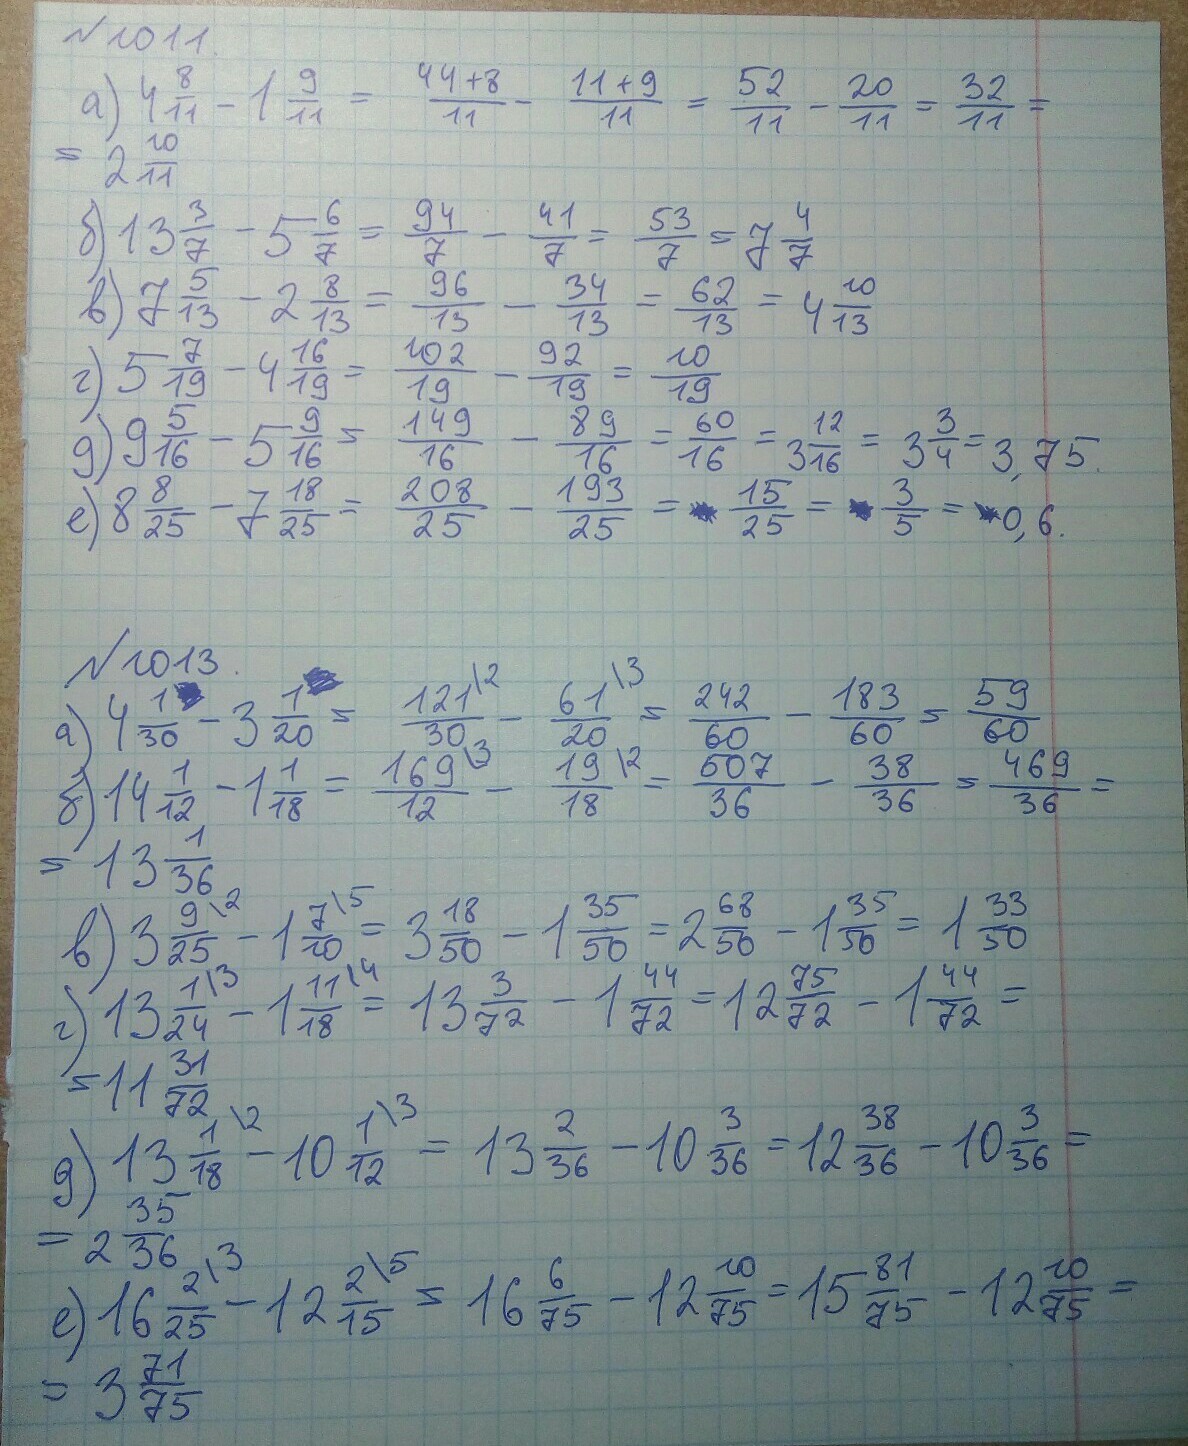 №1011.
а) 4 8/11 - 1 9/11 = (44+8)/11 - (11+9)/11 = 52/11 - 20/11 = 32/11 =
= 2 10/11
б) 13 3/7 - 5 6/7 = 94/7 - 41/7 = 53/7 = 7 4/7
в) 7 5/13 - 2 8/13 = 96/13 - 34/13 = 62/13 = 4 10/13
г) 5 7/19 - 4 16/19 = 102/19 - 92/19 = 10/19
д) 9 5/16 - 5 9/16 = 149/16 - 89/16 = 60/16 = 3 12/16 = 3 3/4 = 3,75.
е) 8 8/25 - 7 18/25 = 208/25 - 193/25 = 15/25 = 3/5 = 0,6.
№1013.
а) 4 1/30 - 3 1/20 = 121/30\2 - 61/20\3 = 242/60 - 183/60 = 59/60
б) 14 1/12 - 1 1/18 = 169/12\3 - 19/18\2 = 507/36 - 38/36 = 469/36 =
= 13 1/36
в) 3 9/25\2 - 1 7/10\5 = 3 18/50 - 1 35/50 = 2 68/50 - 1 35/50 = 1 33/50
г) 13 1/24\3 - 1 11/18\4 = 13 3/72 - 1 44/72 = 12 75/72 - 1 44/72 =
= 11 31/72
д) 13 1/18\2 - 10 1/12\3 = 13 2/36 - 10 3/36 = 12 38/36 - 10 3/36 =
= 2 35/36
е) 16 2/25\3 - 12 2/15\5 = 16 6/75 - 12 10/75 = 15 81/75 - 12 10/75 =
= 3 71/75